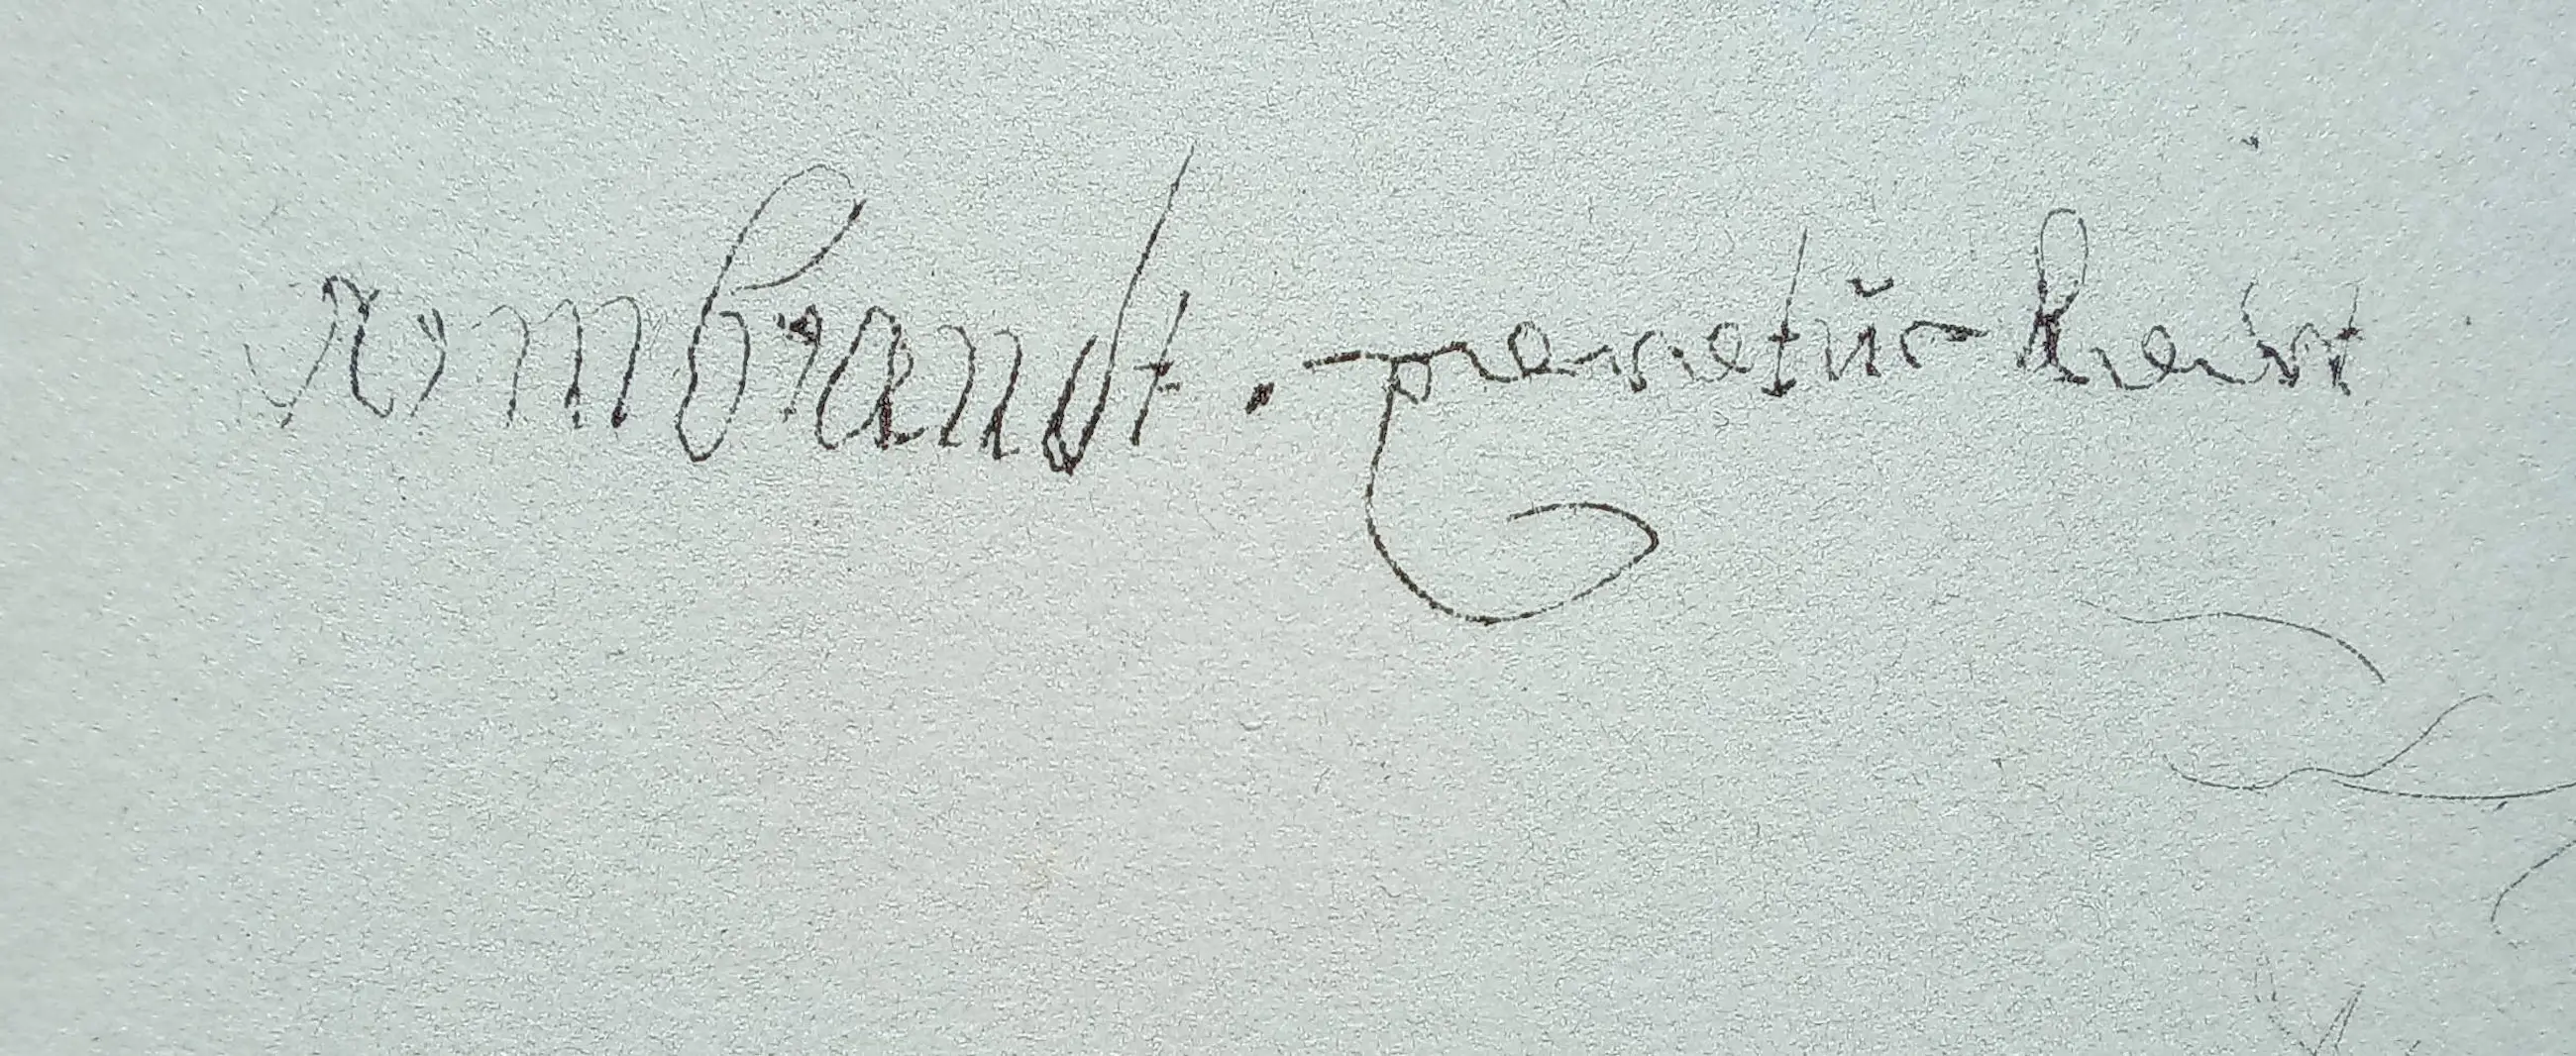 Rembrandt . geretŭckert